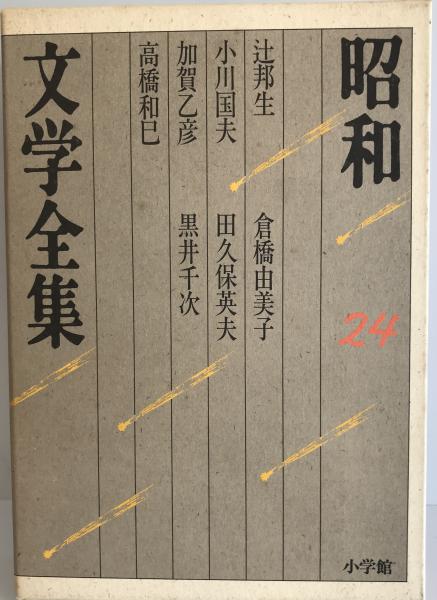 昭和
24
辻邦生
倉橋由美子
小川国夫
田久保英夫
加賀乙彦
黒井千次
高橋和巳
文学全集
小学館